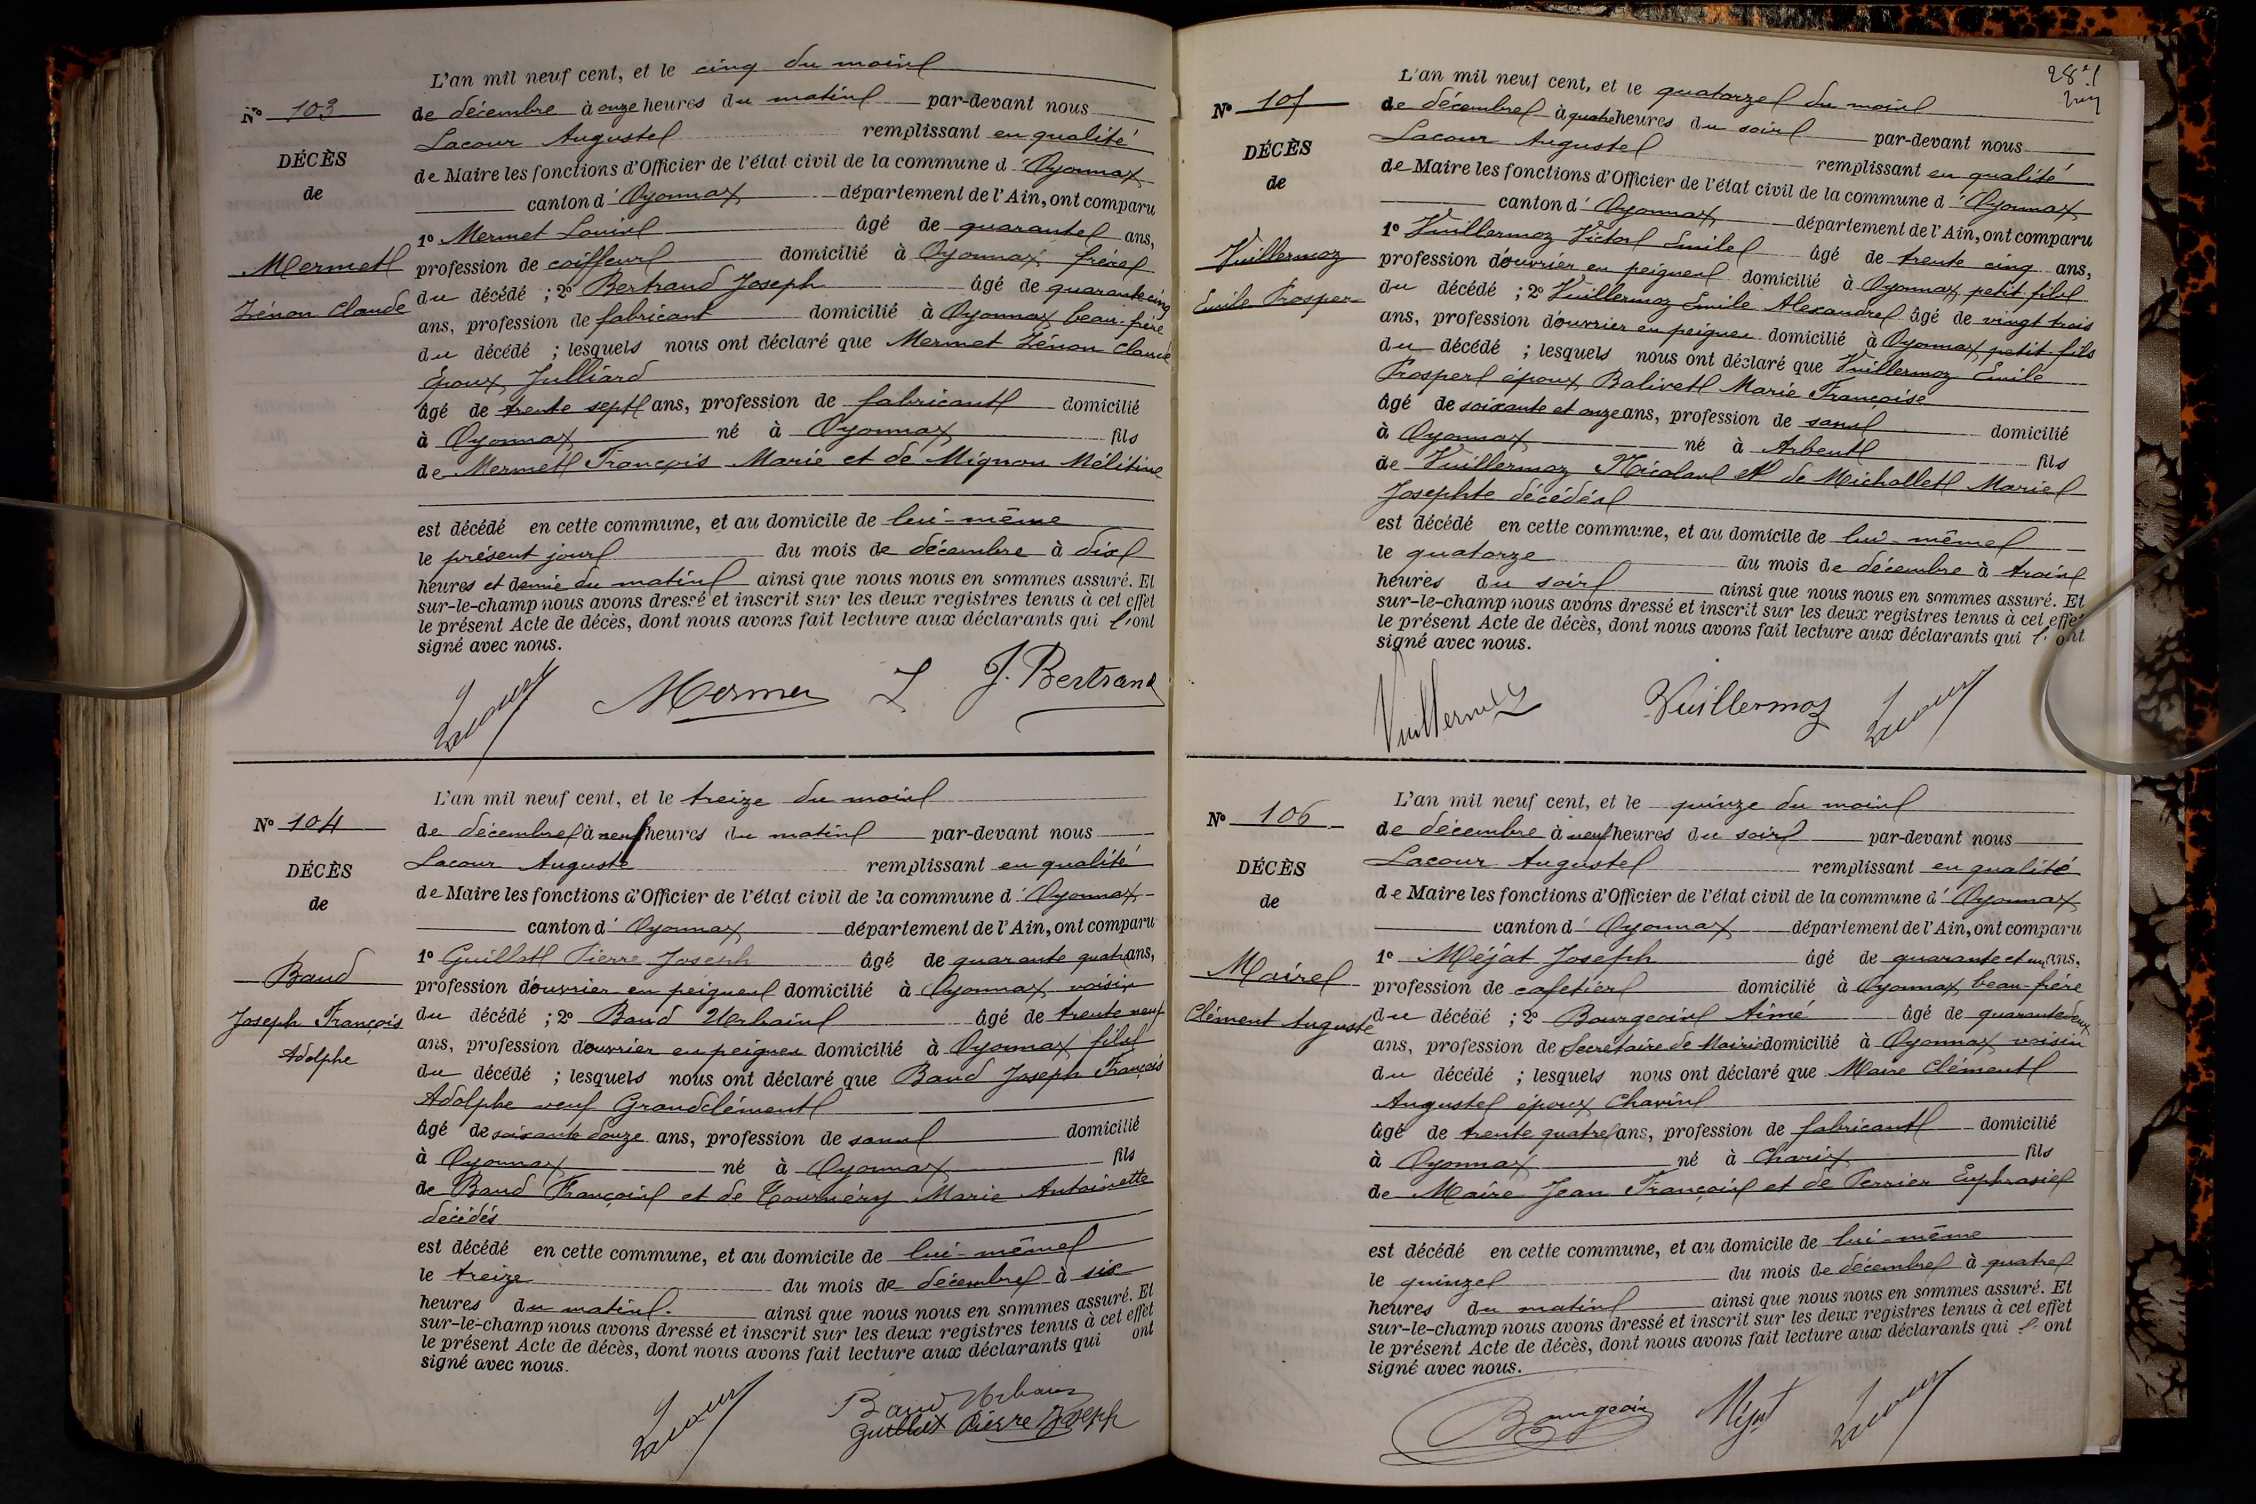 L'an mil neuf cent, et le cinq du mois
N° 103
de décembre à onze heures du matin par-devant nous
Lacour Auguste remplissant en qualité
DÉCÈS
de Maire les fonctions d'Officier de l'état civil de la commune d'Oyonnax
de
canton d'Oyonnax département de l'Ain, ont comparu
1° Mermet Louis âgé de quarante ans,
Mermet
profession de coiffeur domicilié à Oyonnax frère
Zénon Claude
du décédé ; 2° Bertrand Joseph âgé de quarante cinq
ans, profession de fabricant domicilié à Oyonnax beau-frère
du décédé ; lesquels nous ont déclaré que Mermet Zénon Claude
époux Julliard
âgé de trente sept ans, profession de fabricant domicilié
à Oyonnax né à Oyonnax fils
de Mermet François Marie et de Mignon Mélitine
est décédé en cette commune, et au domicile de lui-même
le présent jour du mois de décembre à dix
heures et demie du matin ainsi que nous nous en sommes assuré. Et
sur-le-champ nous avons dressé et inscrit sur les deux registres tenus à cet effet
le présent Acte de décès, dont nous avons fait lecture aux déclarants qui l'ont
signé avec nous.
Lacour Mermet L J. Bertrand
L'an mil neuf cent, et le treize du mois
N° 104
de décembre à neuf heures du matin par-devant nous
Lacour Auguste remplissant en qualité
DÉCÈS
de Maire les fonctions d'Officier de l'état civil de la commune d'Oyonnax
de
canton d'Oyonnax département de l'Ain, ont comparu
1° Guillet Pierre Joseph âgé de quarante quatre ans,
Baud
profession d'ouvrier en peignes domicilié à Oyonnax voisin
Joseph François
du décédé ; 2° Baud Urbain âgé de trente neuf
Adolphe
ans, profession d'ouvrier en peignes domicilié à Oyonnax fils
du décédé ; lesquels nous ont déclaré que Baud Joseph François
Adolphe veuf Grandclément
âgé de soixante douze ans, profession de sans domicilié
à Oyonnax né à Oyonnax fils
de Baud François et de Tournéry Marie Antoinette
décédés
est décédé en cette commune, et au domicile de lui-même
le treize du mois de décembre à six
heures du matin. ainsi que nous nous en sommes assuré. Et
sur-le-champ nous avons dressé et inscrit sur les deux registres tenus à cet effet
le présent Acte de décès, dont nous avons fait lecture aux déclarants qui ont
signé avec nous.
Lacour Baud Urbain
Guillet Pierre Joseph
L'an mil neuf cent, et le quatorze du mois
N° 105
de décembre à quatre heures du soir par-devant nous
Lacour Auguste remplissant en qualité
DÉCÈS
de Maire les fonctions d'Officier de l'état civil de la commune d'Oyonnax
de
canton d'Oyonnax département de l'Ain, ont comparu
1° Vuillermoz Victor Emile âgé de trente cinq ans,
Vuillermoz
profession d'ouvrier en peignes domicilié à Oyonnax petit fils
Emile Prosper
du décédé ; 2° Vuillermoz Emile Alexandre âgé de vingt trois
ans, profession d'ouvrier en peignes domicilié à Oyonnax petit-fils
du décédé ; lesquels nous ont déclaré que Vuillermoz Emile
Prosper époux Balivet Marie Françoise
âgé de soixante et onze ans, profession de sans domicilié
à Oyonnax né à Arbent fils
de Vuillermoz Nicolas et de Michollet Marie
Josephte décédés
est décédé en cette commune, et au domicile de lui-même
le quatorze du mois de décembre à trois
heures du soir ainsi que nous nous en sommes assuré. Et
sur-le-champ nous avons dressé et inscrit sur les deux registres tenus à cet effet
le présent Acte de décès, dont nous avons fait lecture aux déclarants qui l'ont
signé avec nous.
Vuillermoz Vuillermoz Lacour
L'an mil neuf cent, et le quinze du mois
N° 106
de décembre à neuf heures du soir par-devant nous
Lacour Auguste remplissant en qualité
DÉCÈS
de Maire les fonctions d'Officier de l'état civil de la commune d'Oyonnax
de
canton d'Oyonnax département de l'Ain, ont comparu
1° Méjat Joseph âgé de quarante et un ans,
Maire
profession de cafetier domicilié à Oyonnax beau-frère
Clément Auguste
du décédé ; 2° Bourgeois Aimé âgé de quarante deux
ans, profession de Secrétaire de Mairie domicilié à Oyonnax voisin
du décédé ; lesquels nous ont déclaré que Maire Clément
Auguste époux Chavin
âgé de trente quatre ans, profession de fabricant domicilié
à Oyonnax né à Charix fils
de Maire Jean François et de Perrier Euphrasie
est décédé en cette commune, et au domicile de lui-même
le quinze du mois de décembre à quatre
heures du matin ainsi que nous nous en sommes assuré. Et
sur-le-champ nous avons dressé et inscrit sur les deux registres tenus à cet effet
le présent Acte de décès, dont nous avons fait lecture aux déclarants qui l'ont
signé avec nous.
Bourgeois Méjat Lacour